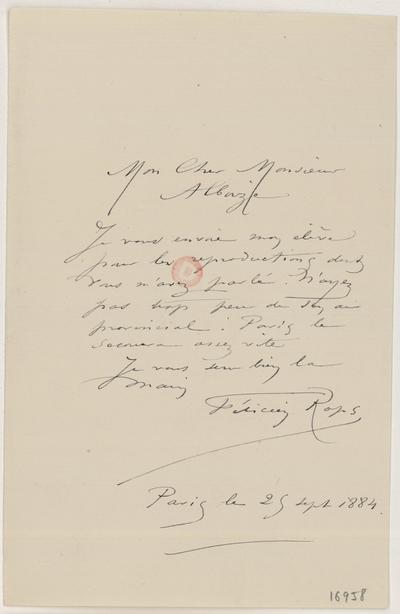 Mon Cher Monsieur
Je vous envoie mon élève
pour les reproductions dont
vous m'avez parlé. N'ayez
pas trop peur de son air
provincial : Paris le
secouera assez vite
Je vous serre bien la
main
Félicien Rops
Paris le 25 sept 1884.
16958